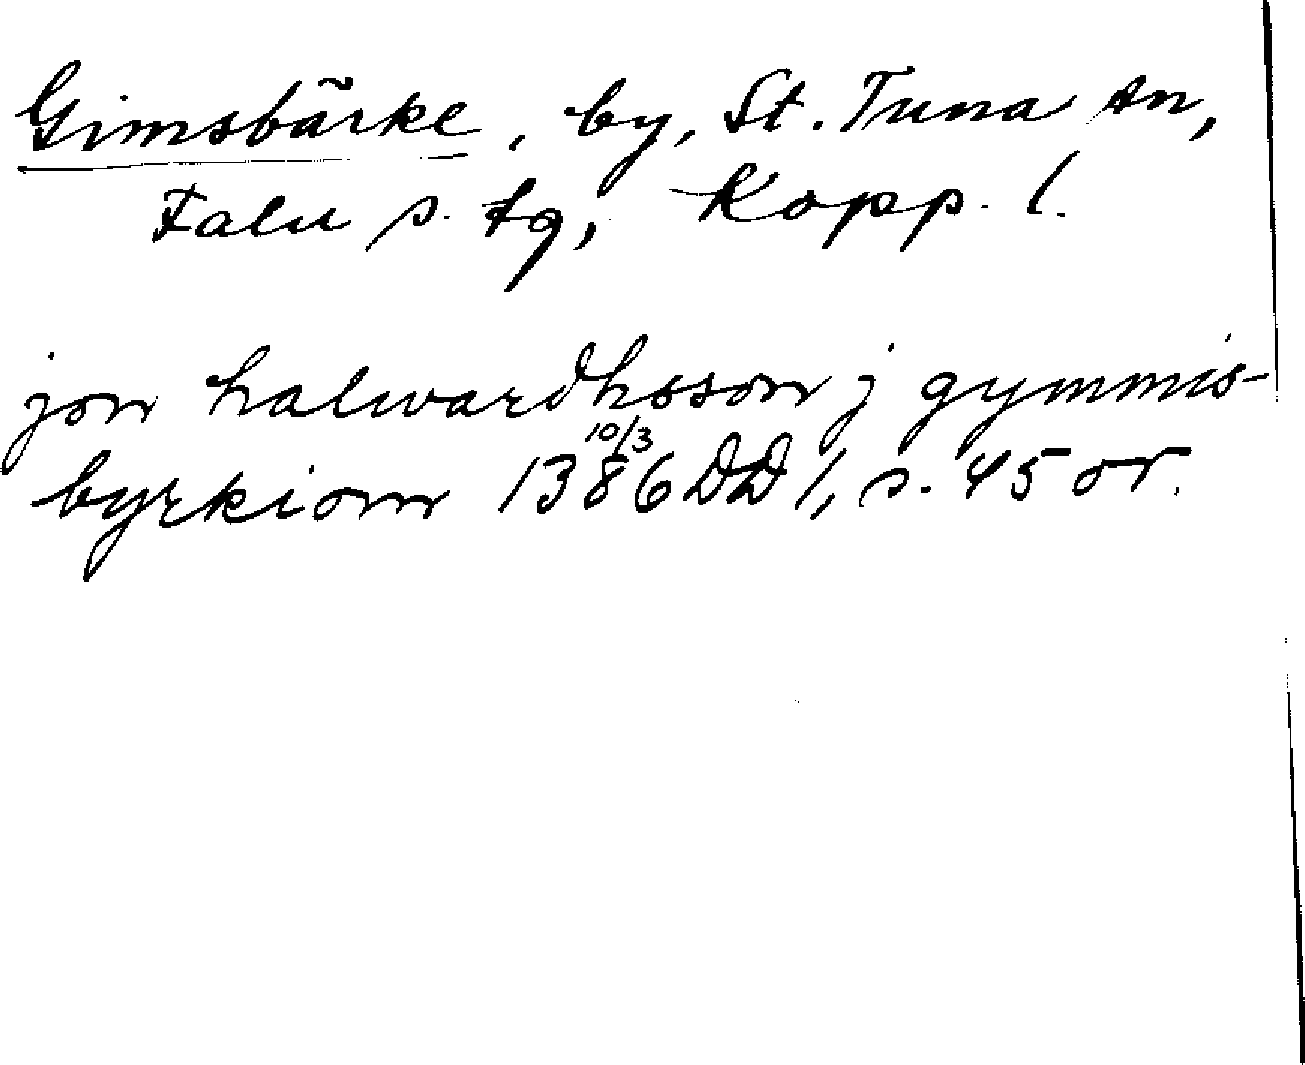 Gimsbärke, by, St. Tuna sn,
Falu s. tg, Kopp. l.
jon halwardhsson j gymmis-
byrkiom 10/3 1386 DD 1, s. 45 or.